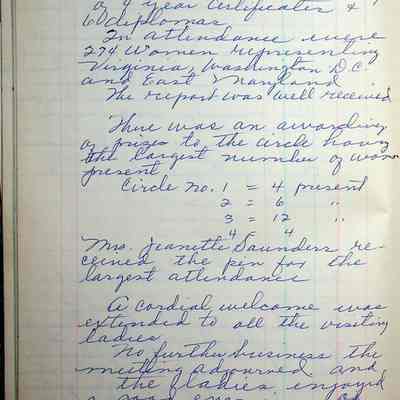 of 4 year Certificates &
60 diplomas
In attendance were
274 women representing
Virginia, Washington D.C.
and East Maryland.
The report was well received
There was an awarding
of prizes to the circle having
the largest number of women
present
Circle no. 1 = 4 present
2 = 6 "
3 = 12 "
4 = 4
Mrs. Jeanette Saunders re-
ceived the pin for the
largest attendance
A cordial welcome was
extended to all the visiting
ladies.
No further business the
meeting adjourned and
the ladies enjoyed
a